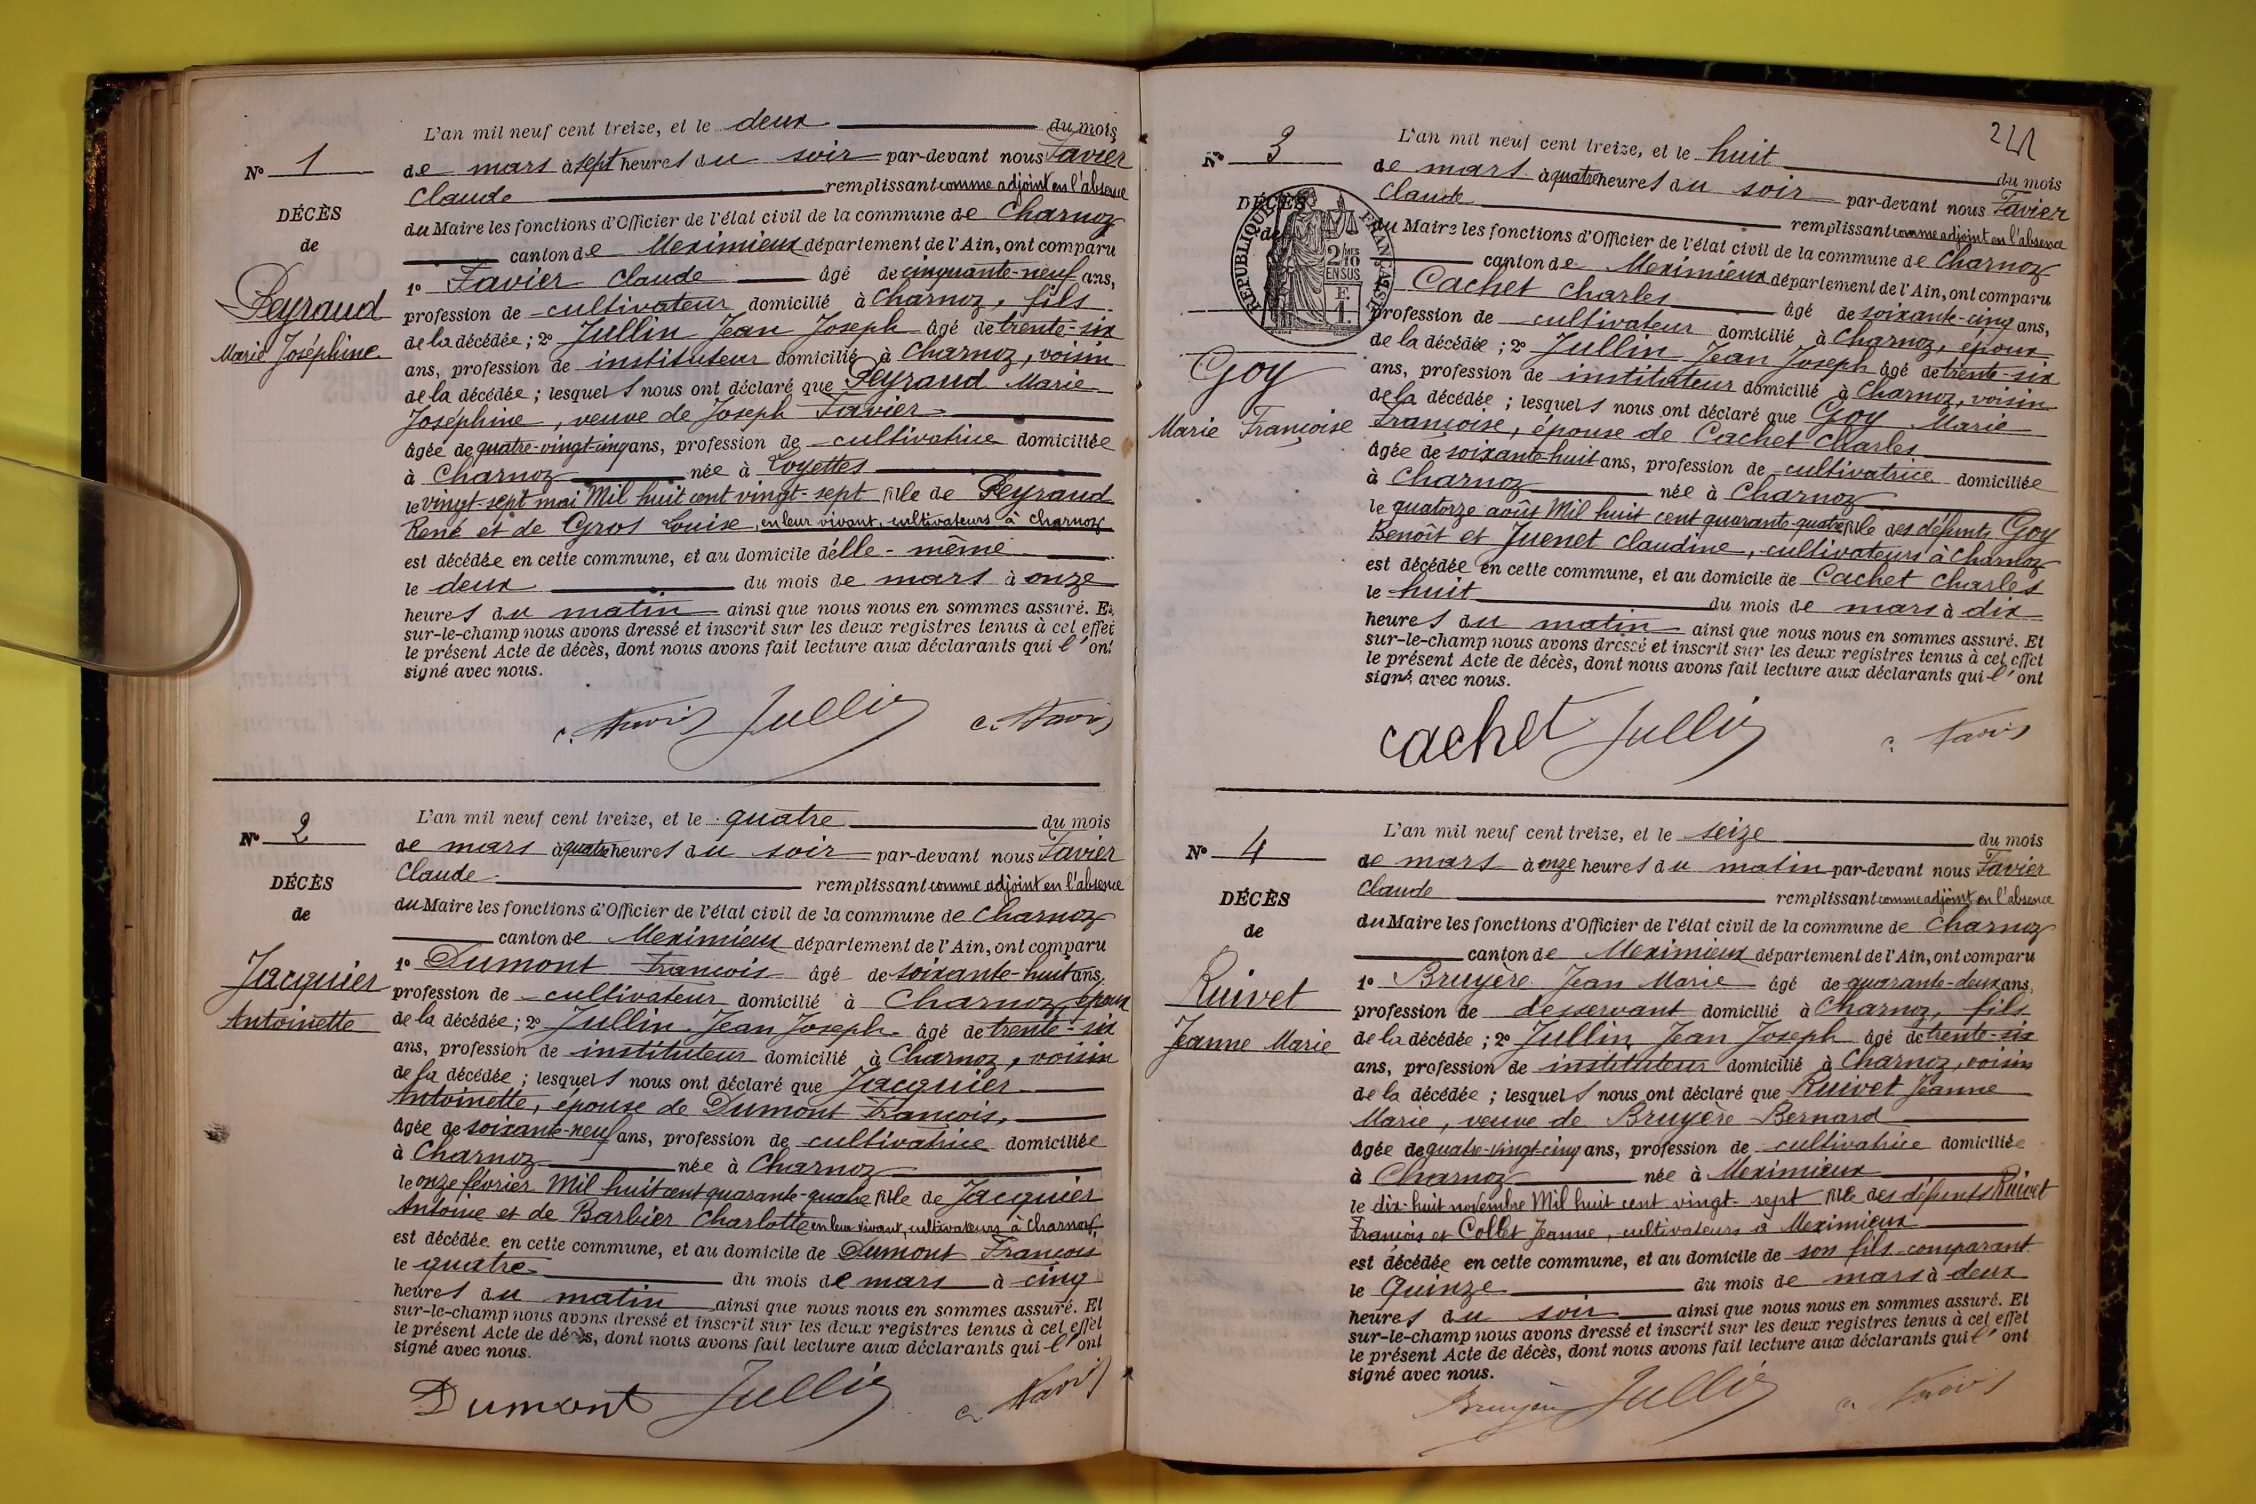 L'an mil neuf cent treize, et le deux du mois
N° 1
de mars à sept heures du soir par-devant nous Favier
Claude remplissant comme adjoint en l'absence
DÉCÈS
du Maire les fonctions d'Officier de l'état civil de la commune de Charnoz
de
canton de Meximieux département de l'Ain, ont comparu
1° Favier Claude âgé de cinquante-neuf ans,
Peyraud
profession de cultivateur domicilié à Charnoz, fils
Marie Joséphine
de la décédée ; 2° Jullin Jean Joseph âgé de trente-six
ans, profession de instituteur domicilié à Charnoz, voisin
de la décédée ; lesquels nous ont déclaré que Peyraud Marie
Joséphine, veuve de Joseph Favier
âgée de quatre-vingt-cinq ans, profession de cultivatrice domiciliée
à Charnoz née à Loyettes
le vingt-sept mai Mil huit cent vingt-sept fille de Peyraud
René et de Gros Louise, en leur vivant, cultivateurs à Charnoz
est décédée en cette commune, et au domicile d'elle-même
le deux du mois de mars à onze
heures du matin ainsi que nous nous en sommes assuré. Et
sur-le-champ nous avons dressé et inscrit sur les deux registres tenus à cet effet
le présent Acte de décès, dont nous avons fait lecture aux déclarants qui l'ont
signé avec nous.
C. Favier Jullin C. Favier
L'an mil neuf cent treize, et le quatre du mois
N° 2
de mars à quatre heures du soir par-devant nous Favier
Claude remplissant comme adjoint en l'absence
DÉCÈS
du Maire les fonctions d'Officier de l'état civil de la commune de Charnoz
de
canton de Meximieux département de l'Ain, ont comparu
1° Dumont François âgé de soixante-huit ans,
Jacquier
profession de cultivateur domicilié à Charnoz, époux
Antoinette
de la décédée ; 2° Jullin Jean Joseph âgé de trente-six
ans, profession de instituteur domicilié à Charnoz, voisin
de la décédée ; lesquels nous ont déclaré que Jacquier
Antoinette, épouse de Dumont François,
âgée de soixante-neuf ans, profession de cultivatrice domiciliée
à Charnoz née à Charnoz
le onze février Mil huit cent quarante-quatre fille de Jacquier
Antoine et de Barbier Charlotte en leur vivant, cultivateurs à Charnoz,
est décédée en cette commune, et au domicile de Dumont François
le quatre du mois de mars à cinq
heures du matin ainsi que nous nous en sommes assuré. Et
sur-le-champ nous avons dressé et inscrit sur les deux registres tenus à cet effet
le présent Acte de décès, dont nous avons fait lecture aux déclarants qui l'ont
signé avec nous.
Dumont Jullin C. Favier
L'an mil neuf cent treize, et le huit du mois
N° 3
de mars à quatre heures du soir par-devant nous Favier
Claude remplissant comme adjoint en l'absence
DÉCÈS
du Maire les fonctions d'Officier de l'état civil de la commune de Charnoz
de
RÉPUBLIQUE FRANÇAISE
2/10 EN SUS
F. 1.
canton de Meximieux département de l'Ain, ont comparu
Cachet Charles âgé de soixante-cinq ans,
profession de cultivateur domicilié à Charnoz, époux
de la décédée ; 2° Jullin Jean Joseph âgé de trente-six
Goy
ans, profession de instituteur domicilié à Charnoz, voisin
de la décédée ; lesquels nous ont déclaré que Goy Marie
Marie Françoise
Françoise, épouse de Cachet Charles
âgée de soixante-huit ans, profession de cultivatrice domiciliée
à Charnoz née à Charnoz
le quatorze août Mil huit cent quarante-quatre fille des défunts Goy
Benoît et Juenet Claudine, cultivateurs à Charnoz
est décédée en cette commune, et au domicile de Cachet Charles
le huit du mois de mars à dix
heures du matin ainsi que nous nous en sommes assuré. Et
sur-le-champ nous avons dressé et inscrit sur les deux registres tenus à cet effet
le présent Acte de décès, dont nous avons fait lecture aux déclarants qui l'ont
signé avec nous.
Cachet Jullin C. Favier
L'an mil neuf cent treize, et le seize du mois
N° 4
de mars à onze heures du matin par-devant nous Favier
Claude remplissant comme adjoint en l'absence
DÉCÈS
du Maire les fonctions d'Officier de l'état civil de la commune de Charnoz
de
canton de Meximieux département de l'Ain, ont comparu
1° Bruyère Jean Marie âgé de quarante-deux ans,
Ruivet
profession de desservant domicilié à Charnoz, fils
Jeanne Marie
de la décédée ; 2° Jullin Jean Joseph âgé de trente-six
ans, profession de instituteur domicilié à Charnoz, voisin
de la décédée ; lesquels nous ont déclaré que Ruivet Jeanne
Marie, veuve de Bruyère Bernard
âgée de quatre-vingt-cinq ans, profession de cultivatrice domiciliée
à Charnoz née à Meximieux
le dix-huit novembre Mil huit cent vingt-sept fille des défunts Ruivet
François et Collet Jeanne, cultivateurs à Meximieux
est décédée en cette commune, et au domicile de son fils comparant
le quinze du mois de mars à deux
heures du soir ainsi que nous nous en sommes assuré. Et
sur-le-champ nous avons dressé et inscrit sur les deux registres tenus à cet effet
le présent Acte de décès, dont nous avons fait lecture aux déclarants qui l'ont
signé avec nous.
Bruyère Jullin C. Favier